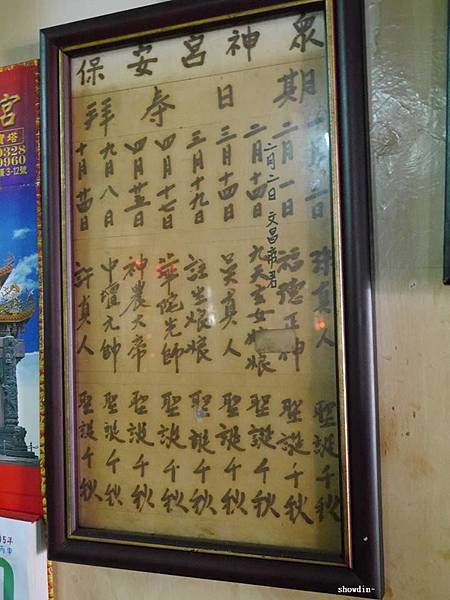 保安宮神衆
拜奉日期
真人 聖誕千秋
二月 日 福德正神 聖誕千秋
二月二日 文昌帝君
二月十四日 九天玄女娘娘 聖誕千秋
三月十四日 吴真人 聖誕千秋
三月十九日 註生娘娘 聖誕千秋
四月十七日 華陀先師 聖誕千秋
四月廿五日 神農大帝 聖誕千秋
九月八日 中壇元帥 聖誕千秋
十月廿四日 許真人 聖誕千秋
宮
寶塔
0328
0960
3-12號
showdin~